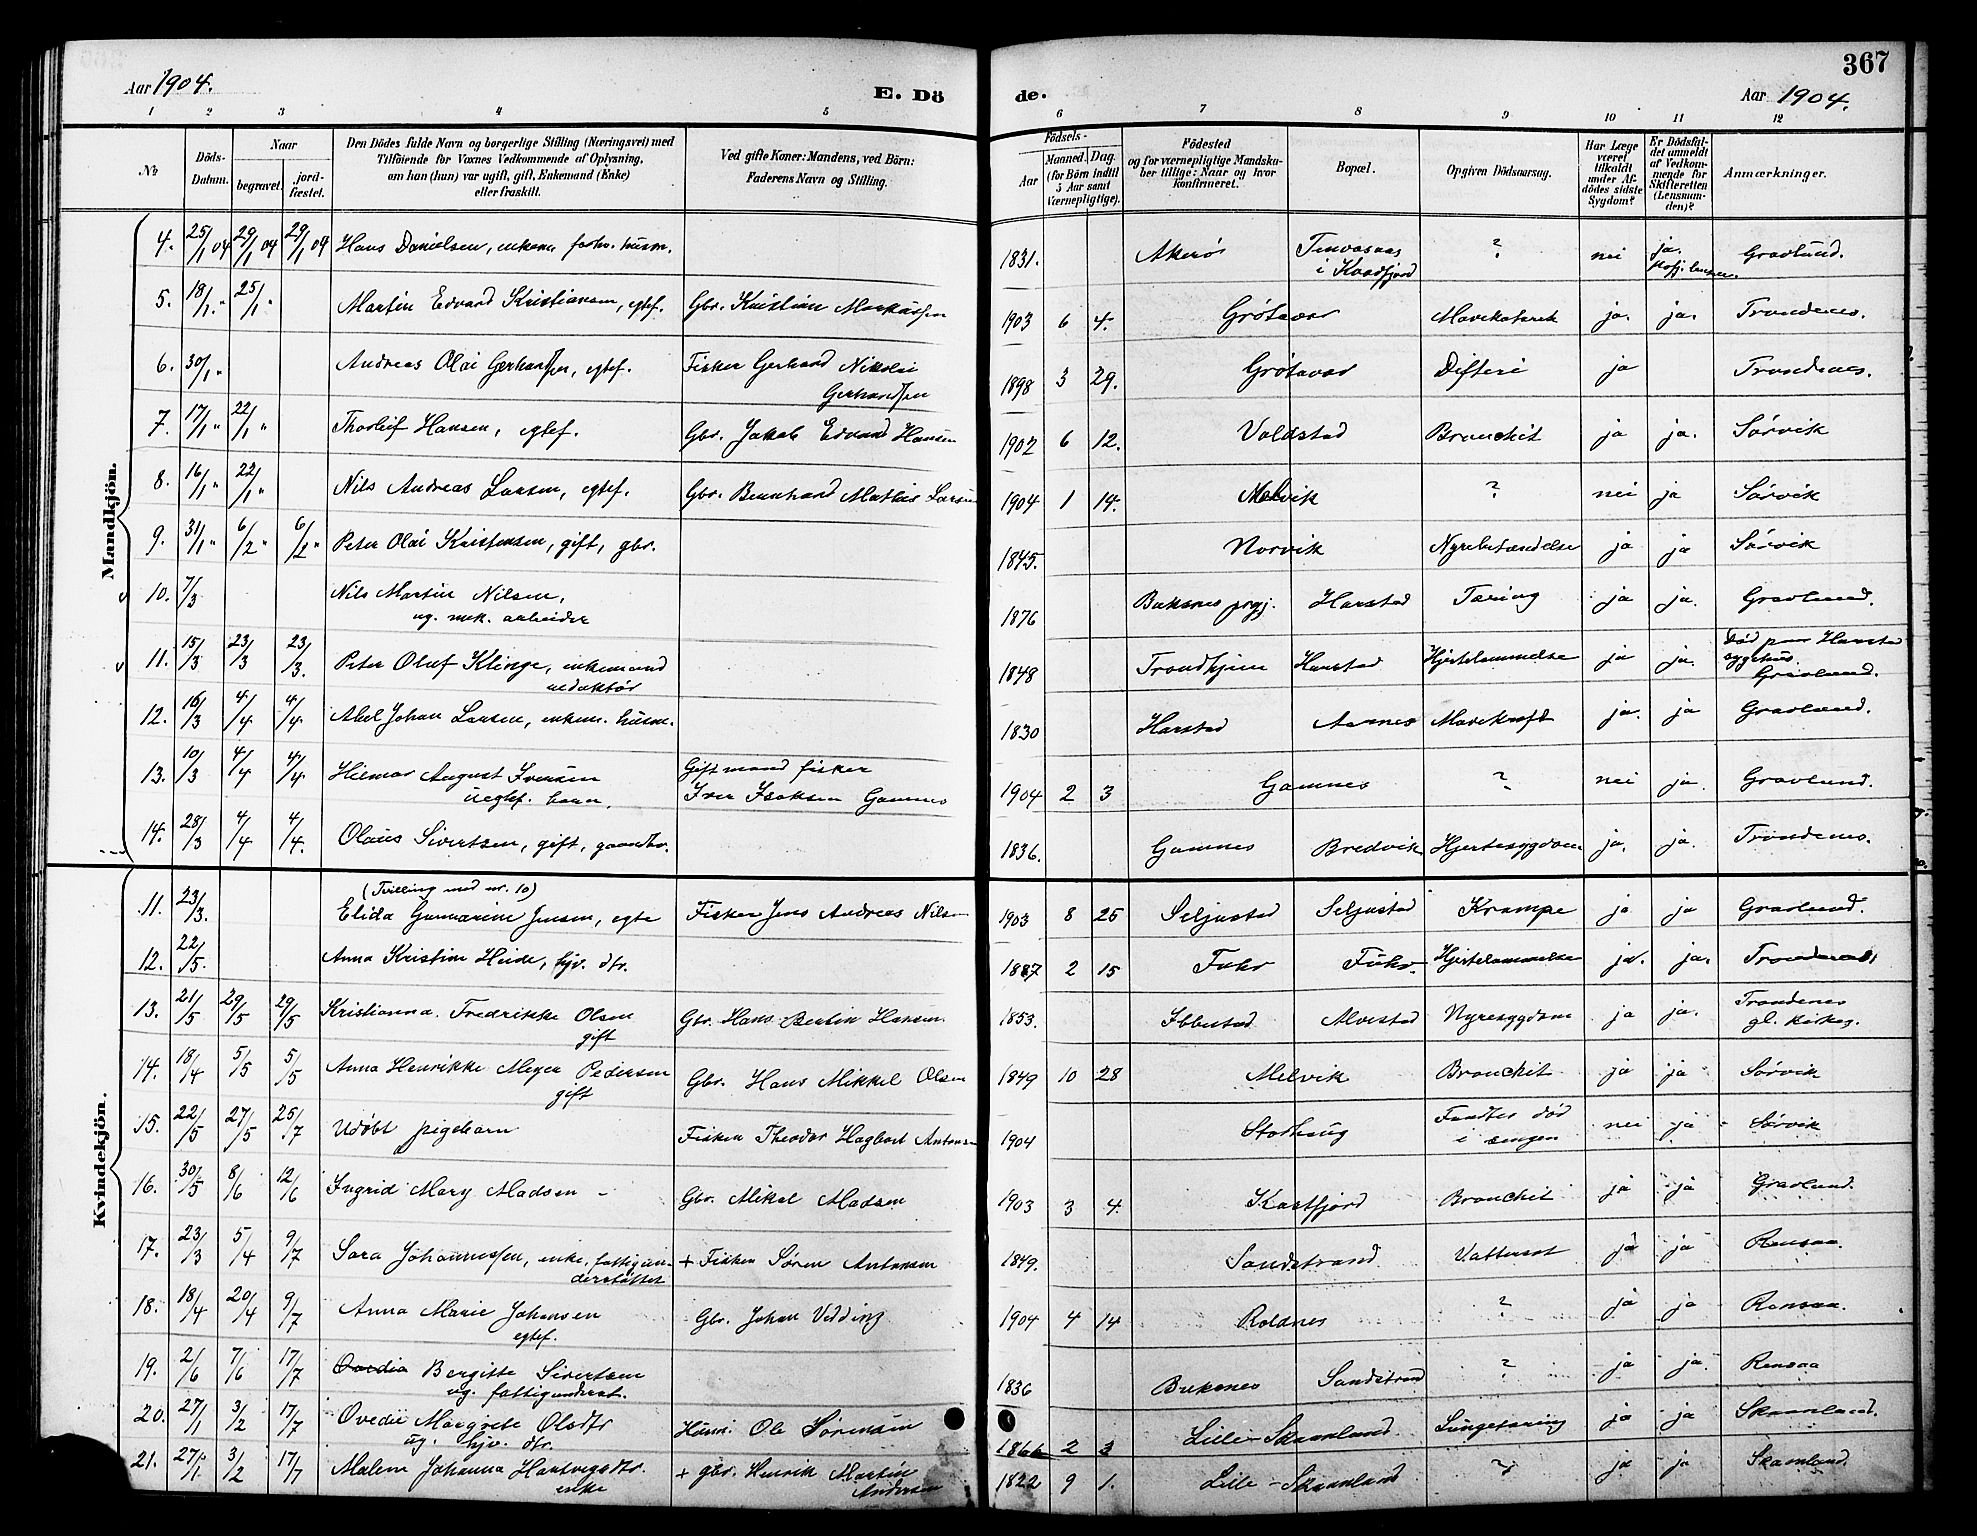 367
Aar 1904.
E. Dö
de.
Aar 1904.
1 2 3 4 5 6 7 8 9 10 11 12
Nr
Döds-
Datum.
Naar
begravet.
jord-
fæstet.
Den Dödes fulde Navn og borgerlige Stilling (Næringsvei) med
Tilföiende for Voxnes Vedkommende af Oplysning,
om han (hun) var ugift, gift, Enkemand (Enke)
eller fraskilt.
Ved gifte Koner: Mandens, ved Börn:
Faderens Navn og Stilling.
Födsels-
Aar
Maaned.
Dag.
(for Börn indtil
5 Aar samt
Værnepligtige).
Födested
og for værnepligtige Mandsku-
ber tillige: Naar og hvor
konfirmeret.
Bopæl.
Opgiven Dödsaarsag.
Har Læge
været
tilkaldt
under Af-
dödes sidste
Sygdom?
Er Dödsfal-
det anmeldt
af Vedkom-
mende for
Skifteretten
(Lensman-
den)?
Anmærkninger.
Mandkjön.
4. 25/1 04 29/1 04 29/1 04 Hans Danielsen, enkem. forhv. husm. 1831. Akerø i Kaadfjord ? nei ja. Gravlund.
5. 18/1 " 25/1 " Martin Edvard Kristiansen, egtef. Gbr. Kristian Markussen 1903 6 4. Grøtavær Mavekatarrh ja. ja. Trondenes.
6. 30/1 " Andreas Olai Gerhardsen, egtef. Fisker Gerhard Nikolai
Gerhardsen 1898 3 29. Grøtavær Difteri ja Trondenes.
7. 17/1 " 22/1 " Thorleif Hansen, egtef. Gbr. Jakob Edvard Hansen 1902 6 12. Voldstad Bronchit ja ja. Sørvik
8. 16/1 " 22/1 " Nils Andreas Larsen, egtef. Gbr. Bernhard Mathis Larsen 1904 1 14. Melvik ? nei ja Sørvik
9. 31/1 " 6/2 " 6/2 " Peter Olai Kristensen, gift, gbr. 1845. Norvik Nyrebetændelse ja ja Sørvik
10. 7/3 Nils Martin Nilsen,
ug. mek. arbeider 1876 Buksnes prgj. Harstad Tæring ja ja. Gravlund.
11. 15/3 23/3 23/3. Peter Oluf Klinge, enkemand
redaktør 1848 Trondhjem Harstad Hjertelammelse ja ja. Død paa Harstad
sygehus.
Gravlund.
12. 16/3 4/4 4/4. Abel Johan Larsen, enkem. husm. 1830 Harstad Aarnes Mavekræft ja. ja Gravlund.
13. 10/3 4/4 4/4. Hilmar August Iversen
uegtef. barn. Gift mand fisker
Iver Isaksen Gamnes 1904 2 3 Gamnes ? nei ja Gravlund.
14. 28/3 4/4 4/4. Olaus Sivertsen, gift, gaardbr. 1836. Gamnes Bredvik Hjertesygdom ja. ja. Trondenes.
Kvindekjön.
11. 23/3. (Tvilling med nr. 10)
Elida Gunnarine Jensen, egte Fisker Jens Andreas Nilsen 1903 8 25 Seljestad Seljestad Krampe ja ja Gravlund.
12. 22/5. Anna Kristine Heide, hjv. dtr. 1887 2 15 Hjertelammelse ja. ja. Trondenes
13. 21/5 29/5 29/5 Kristianna Fredrikke Olsen
gift Gbr. Hans Bertin Hansen 1853. Ibbestad Alvestad Nyresygdom ja ja. Trondenes
gl. kirkeg.
14. 18/4 5/5 5/5 Anna Henrikke Meyer Pedersen
gift Gbr. Hans Mikkel Olsen 1849 10 28 Melvik Bronchit ja ja Sørvik
15. 22/5 27/5 25/7 Udøbt pigebarn Fisker Theodor Hagbart Antonsen 1904 Storhaug Fundtes død
i sengen nei ja Sørvik
16. 30/5 8/6 12/6 Ingrid Mary Madsen - Gbr. Mikal Madsen 1903 3 4. Kastfjord Bronchit ja ja Gravlund.
17. 23/3 5/4 9/7 Sara Johannessen, enke, fattigun-
derstøttet + Fisker Søren Antonsen 1849. Sandstrand Vattersot ja ja Rensaa.
18. 18/4 20/4 9/7 Anna Marie Johansen
egtef. Gbr. Johan Vedding 1904 4 14 Roldnes ? ja ja Rensaa.
19. 2/6 7/6 17/7 Ovedia Bergitte Sivertsen
ug. fattigunderst. 1836 Buksnes Sandstrand ? ja ja. Rensaa
20. 27/1 3/2 17/7 Ovedie Margrete Olsdtr
ug. hjv. dtr. Husm. Ole Sørensen 1866 2 3 Lille-Skaanland Lungetæring ja ja Skaanland.
21. 27/1. 3/2 17/7 Malene Johanna Hartvigsdtr.
enke + gbr. Henrik Martin
Andersen 1822 9 1. Lille-Skaanland ? ja ja Skaanland.